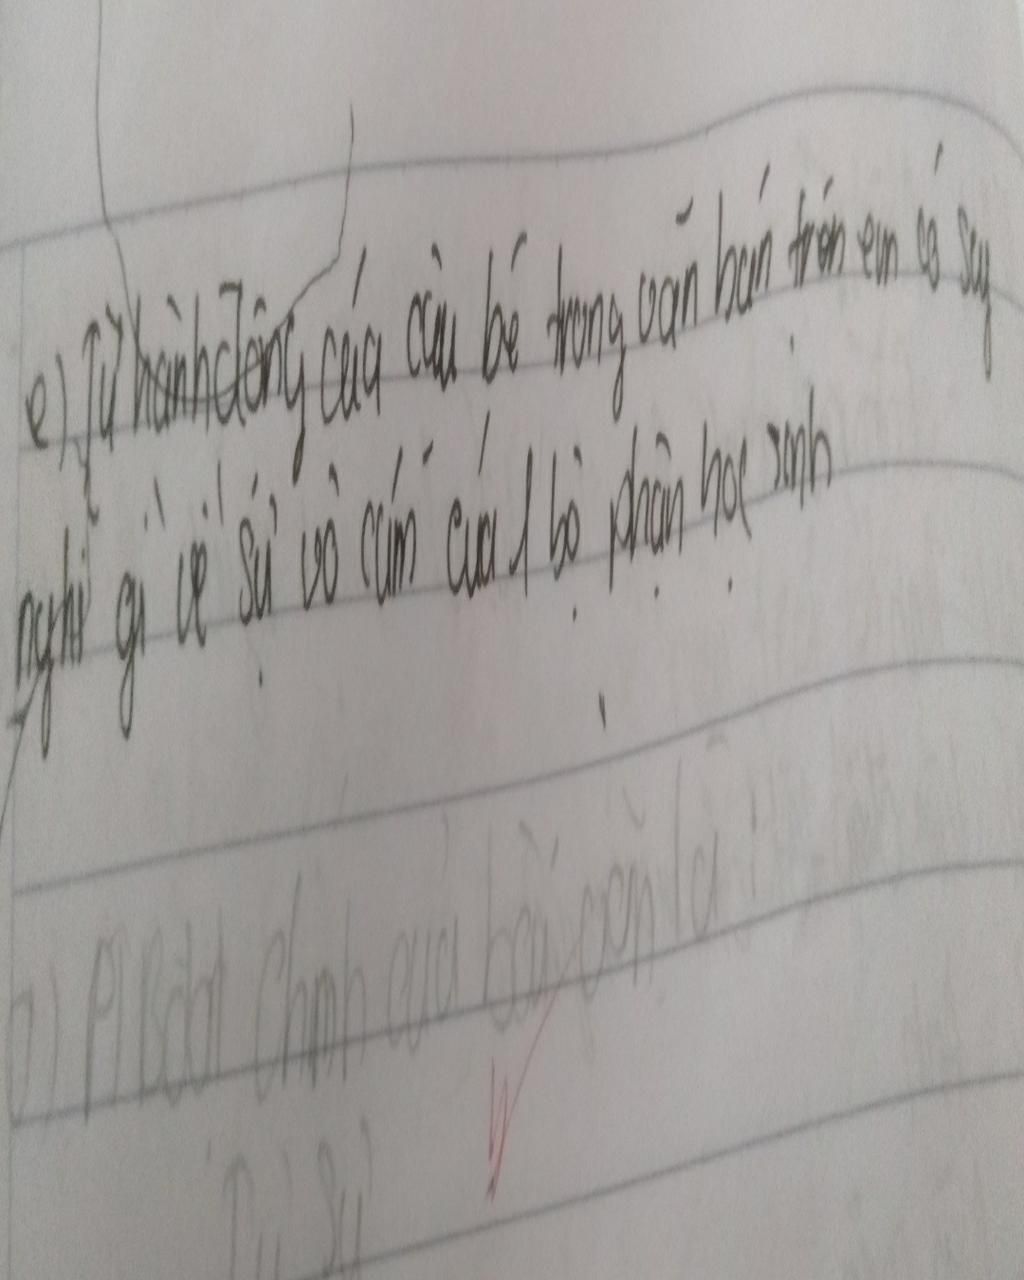 e) Từ hành động của cậu bé trong văn bản trên em có suy
nghĩ gì về sự vô cảm của 1 bộ phận học sinh
PTBĐ chính của bài
Tự sự